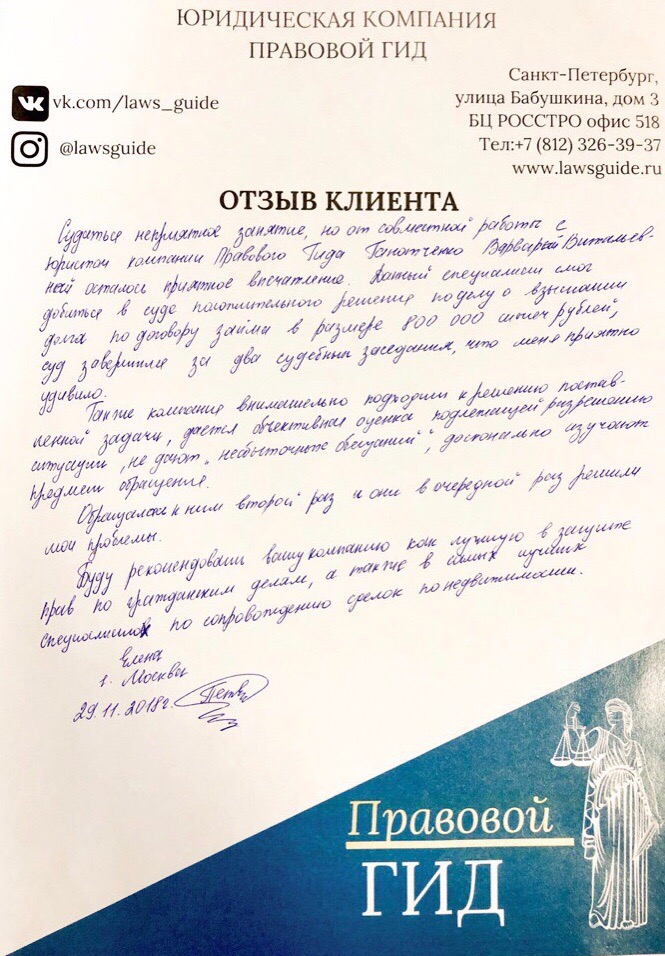 ЮРИДИЧЕСКАЯ КОМПАНИЯ
ПРАВОВОЙ ГИД
Санкт-Петербург,
улица Бабушкина, дом 3
БЦ РОССТРО офис 518
Тел:+7 (812) 326-39-37
www.lawsguide.ru
vk.com/laws_guide
@lawsguide
ОТЗЫВ КЛИЕНТА
Судиться неприятное занятие, но от совместной работы с
юристом компании Правового Гида Варварой Витальев-
ной осталось приятное впечатление. Данный специалист смог
добиться в суде положительного решения по делу о взыскании
долга по договору займа в размере 800 000 тысяч рублей,
суд завершился за два судебных заседания, что меня приятно
удивило.
Также компания внимательно подходит к решению постав-
ленной задачи, дается объективная оценка подлежащей разрешению
ситуации, не дают „несбыточных обещаний", досконально изучают
предмет обращения.
Обращалась к ним второй раз и они в очередной раз решили
мои проблемы.
Буду рекомендовать вашу компанию как лучшую в защите
прав по гражданским делам, а также в самых лучших
специалистов по сопровождению сделок по недвижимости.
Елена
г. Москва
29.11.2018г.
Правовой
ГИД